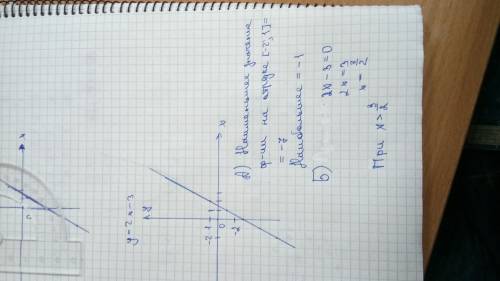 y = 2x - 3
y
x
1
-2 -1 0 1
-2
а) Наименьшее значение
ф-ции на отрезке [-2; 1] =
= -7
Наибольшее = -1
б)
2x - 3 = 0
2x = 3
x = 3/2
При x > 3/2
x
0